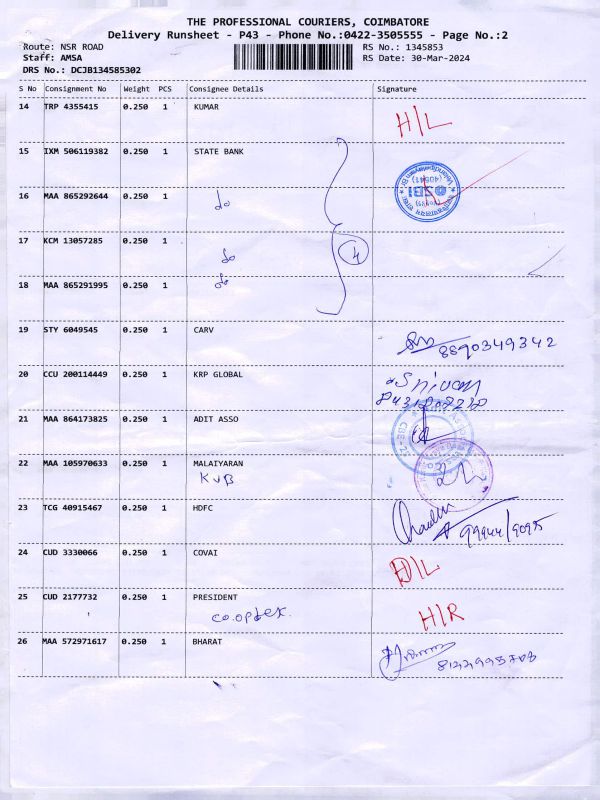 THE PROFESSIONAL COURIERS, COIMBATORE
Delivery Runsheet - P43 - Phone No.:0422-3505555 - Page No.:2
Route: NSR ROAD RS No.: 1345853
Staff: AMSA RS Date: 30-Mar-2024
DRS No.: DCJB134585302
S No Consignment No Weight PCS Consignee Details Signature
14 TRP 4355415 0.250 1 KUMAR
H/L
15 IXM 506119382 0.250 1 STATE BANK
SBI
16 MAA 865292644 0.250 1 do
17 KCM 13057285 0.250 1 do
4
18 MAA 865291995 0.250 1 do
19 STY 6049545 0.250 1 CARV
8890349342
20 CCU 200114449 0.250 1 KRP GLOBAL
21 MAA 864173825 0.250 1 ADIT ASSO
22 MAA 105970633 0.250 1 MALAIYARAN
KVB
23 TCG 40915467 0.250 1 HDFC
24 CUD 3330066 0.250 1 COVAI
D/L
25 CUD 2177732 0.250 1 PRESIDENT
co.optex. H/R
26 MAA 572971617 0.250 1 BHARAT